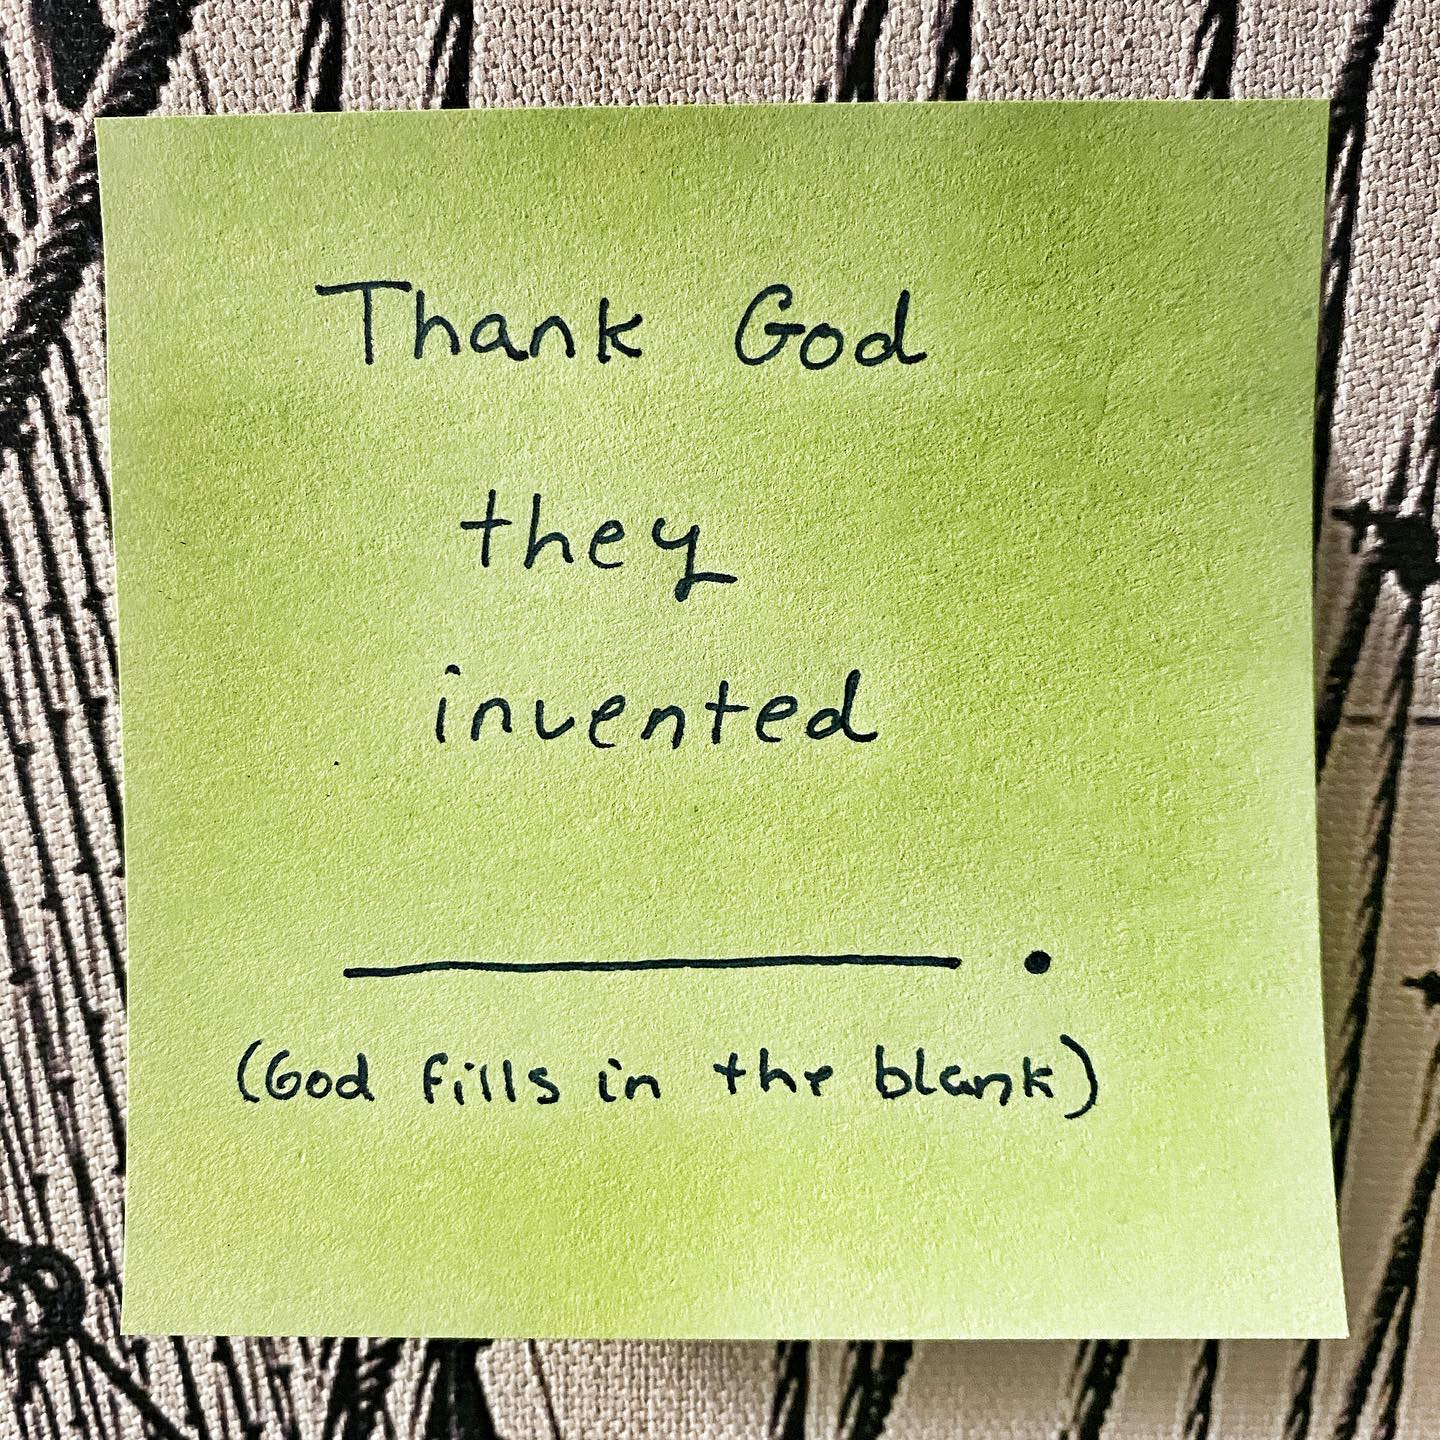 Thank God
they
invented
__________ .
(God fills in the blank)